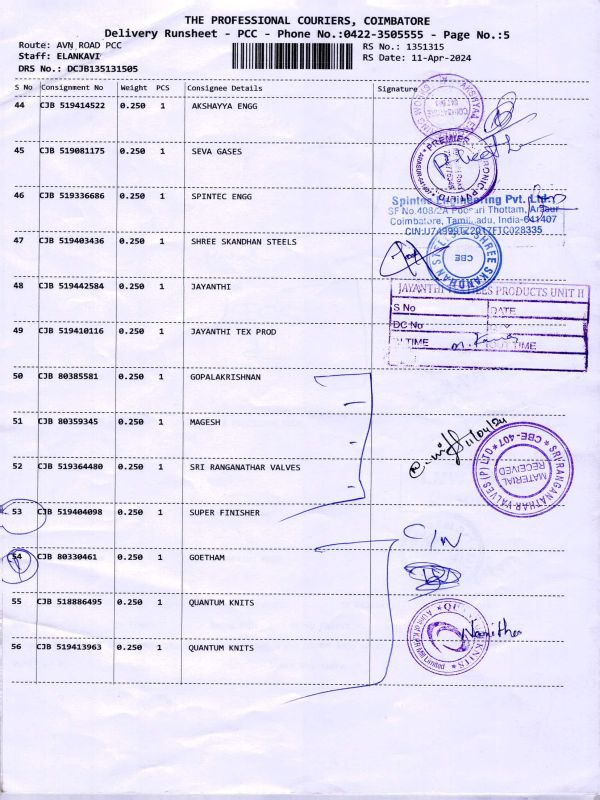 THE PROFESSIONAL COURIERS, COIMBATORE
Delivery Runsheet - PCC - Phone No.:0422-3505555 - Page No.:5
Route: AVN ROAD PCC
RS No.: 1351315
Staff: ELANKAVI
RS Date: 11-Apr-2024
DRS No.: DCJB135131505
S No Consignment No Weight PCS Consignee Details Signature
44 CJB 519414522 0.250 1 AKSHAYYA ENGG
45 CJB 519081175 0.250 1 SEVA GASES
PREMIER
46 CJB 519336686 0.250 1 SPINTEC ENGG
Spintec Engineering Pvt. Ltd.
SF No.408/2A Poosari Thottam, Arasur
Coimbatore, Tamilnadu, India-641407
47 CJB 519403436 0.250 1 SHREE SKANDHAN STEELS
SHREE SKANDHAN STEELS
CBE
48 CJB 519442584 0.250 1 JAYANTHI
JAYANTHI TEXTILES PRODUCTS UNIT II
S No DATE
DC No
IN TIME OUT TIME
49 CJB 519410116 0.250 1 JAYANTHI TEX PROD
50 CJB 80385581 0.250 1 GOPALAKRISHNAN
51 CJB 80359345 0.250 1 MAGESH
11/04/24
52 CJB 519364480 0.250 1 SRI RANGANATHAR VALVES
SRI RANGANATHAR VALVES (P) LTD * CBE-407 *
MATERIAL
RECEIVED
53 CJB 519404098 0.250 1 SUPER FINISHER
C/N
54 CJB 80330461 0.250 1 GOETHAM
55 CJB 518886495 0.250 1 QUANTUM KNITS
Namitha
56 CJB 519413963 0.250 1 QUANTUM KNITS